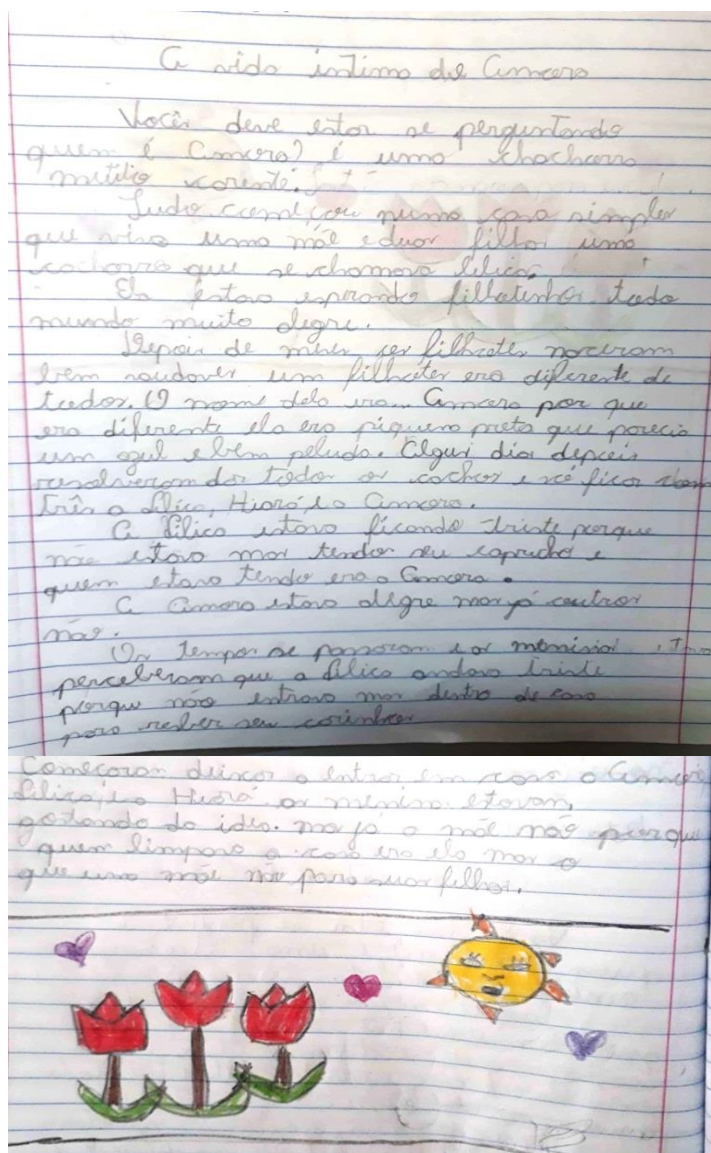 A vida intima de Amora
Vocês deve estar se perguntando
quem é Amora? é uma chachorra
muitio carente.
Tudo começou numa casa simples
que viva uma mãe e duas filhas uma
cachorra que se chamava Lilica.
Ela estava esperando filhotinhos todo
mundo muito alegre.
Depois de meses os filhotes nasceram
bem saudaves um filhotes era diferente de
todos. O nome dela era... Amora por que
era diferente ela era piquena preta que parecia
um azul e bem peluda. Algus dia depois
resolveram dar todos os cachos e só ficar com
três a Lilica, Hiará, e a Amora.
A Lilica estava ficando triste porque
não estava mas tendo seu capricho e
quem estava tendo era a Amora.
A Amora estava alegre mas já outras
não.
Os tempos se passaram e as meninas
perceberam que a Lilica andava triste
porque não entrava mas dentro de casa
para reseber seu carinhos
Começaran deixar a entrar em casa a Amora,
Lilica, e a Hiará as menina estavan,
gostando da ideia. mas já a mãe não porque
quem limpava a casa era ela mas o
que uma mãe não para suas filhas.